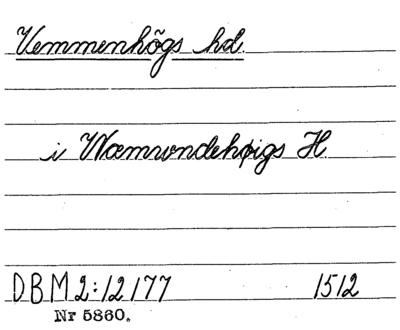 Vemmenhögs hd.
i Wæmwndehøigs H
DBM 2:12177 1512
Nr 5860.